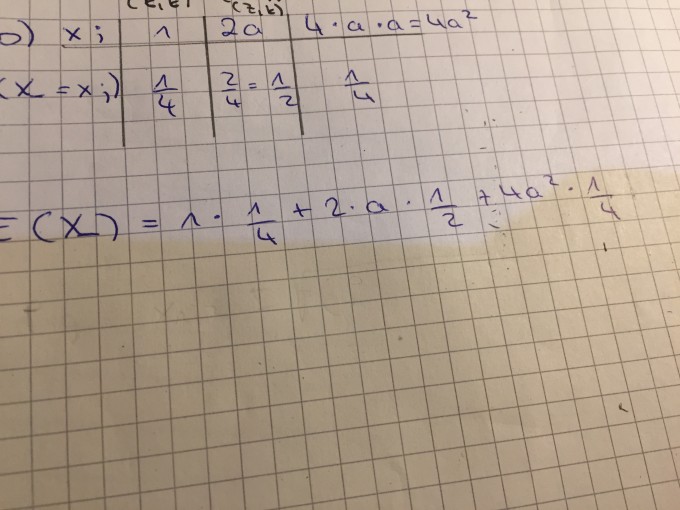 (z,z)
xᵢ 1 2a 4·a·a=4a²
(X=xᵢ) 1/4 2/4=1/2 1/4
E(X) = 1·1/4 + 2·a·1/2 + 4a²·1/4